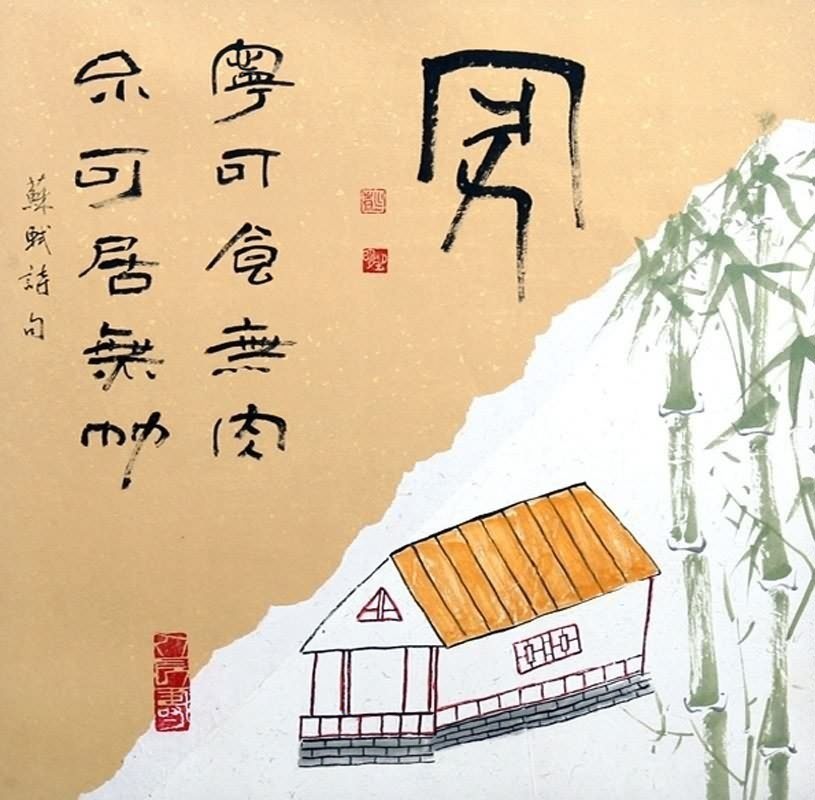 家
寧可食無肉
不可居無竹
蘇軾詩句